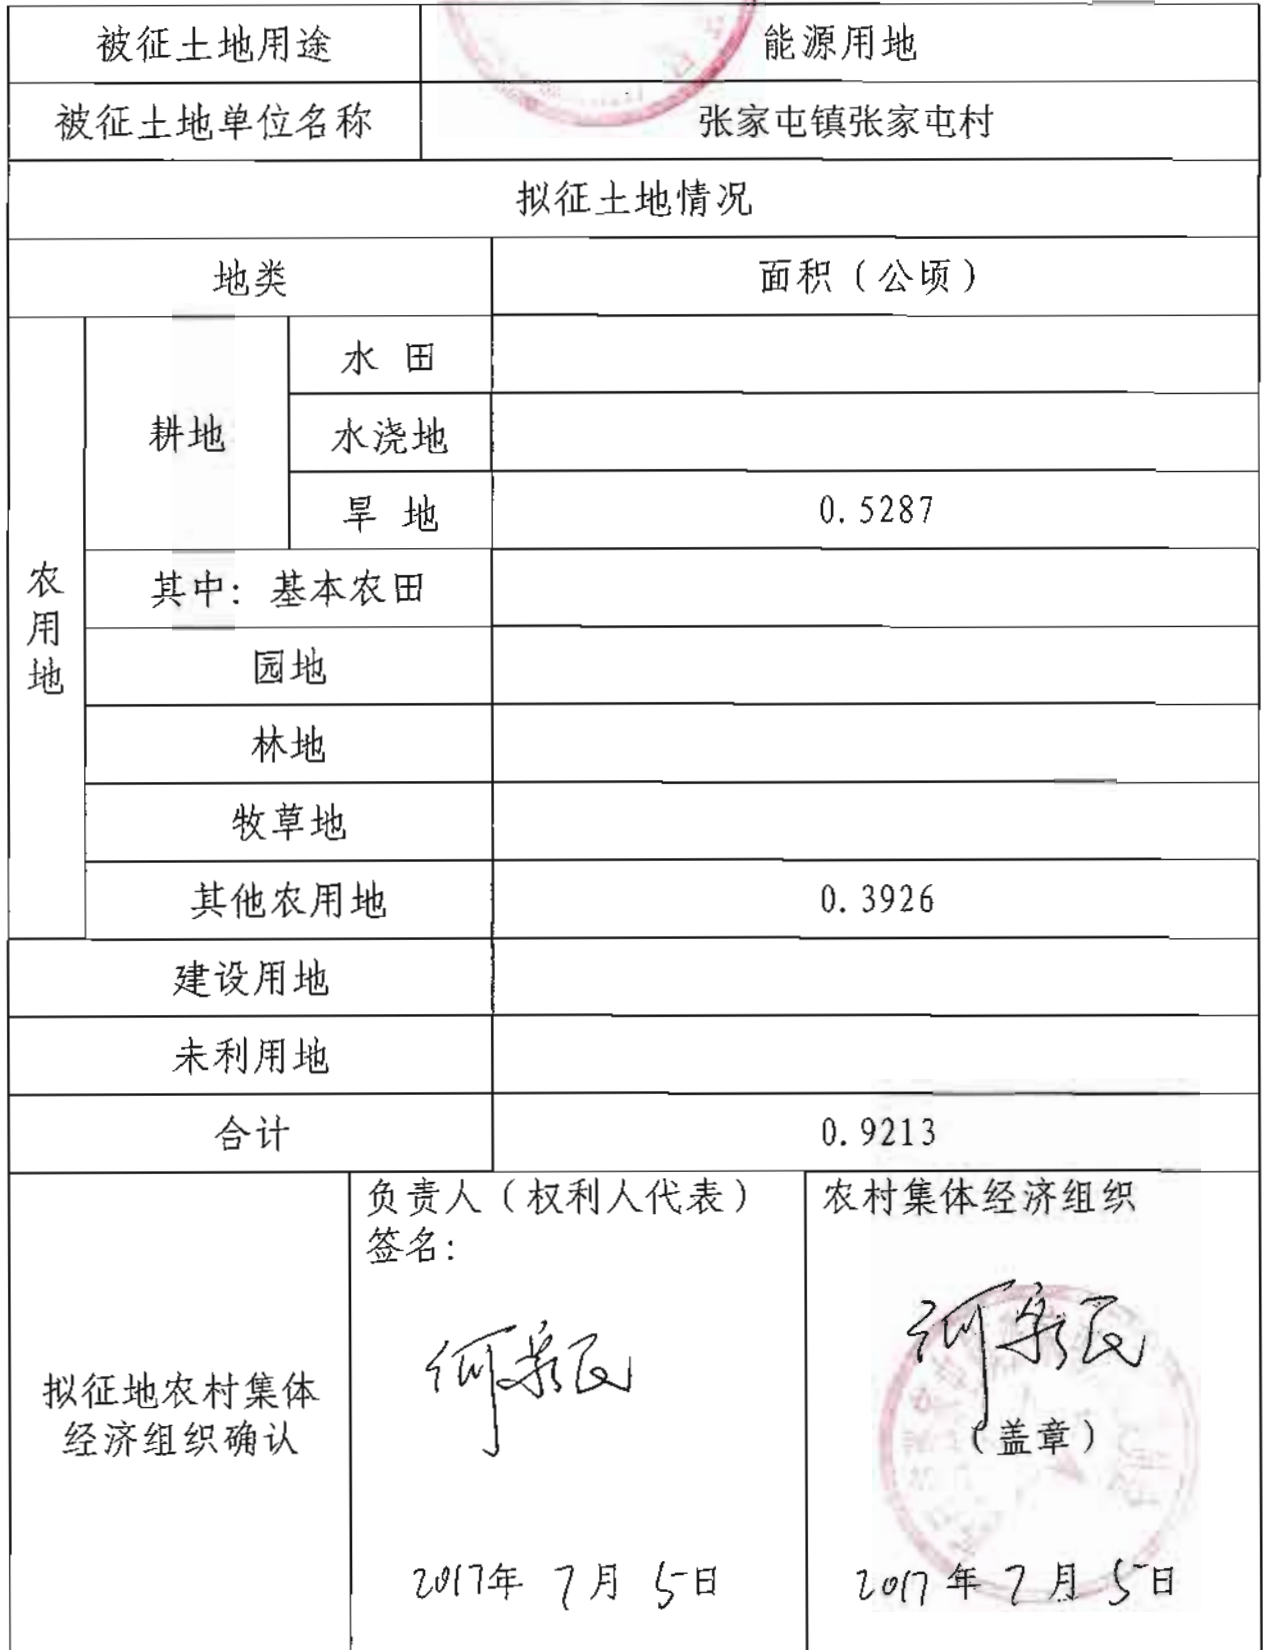 被征土地用途 能源用地
被征土地单位名称 张家屯镇张家屯村
拟征土地情况
地类 面积（公顷）
农用地
耕地
水 田
水浇地
旱 地 0.5287
其中：基本农田
园地
林地
牧草地
其他农用地 0.3926
建设用地
未利用地
合计 0.9213
拟征地农村集体
经济组织确认
负责人（权利人代表）
签名：
2017年 7月 5日
农村集体经济组织
（盖章）
2017年 7月 5日